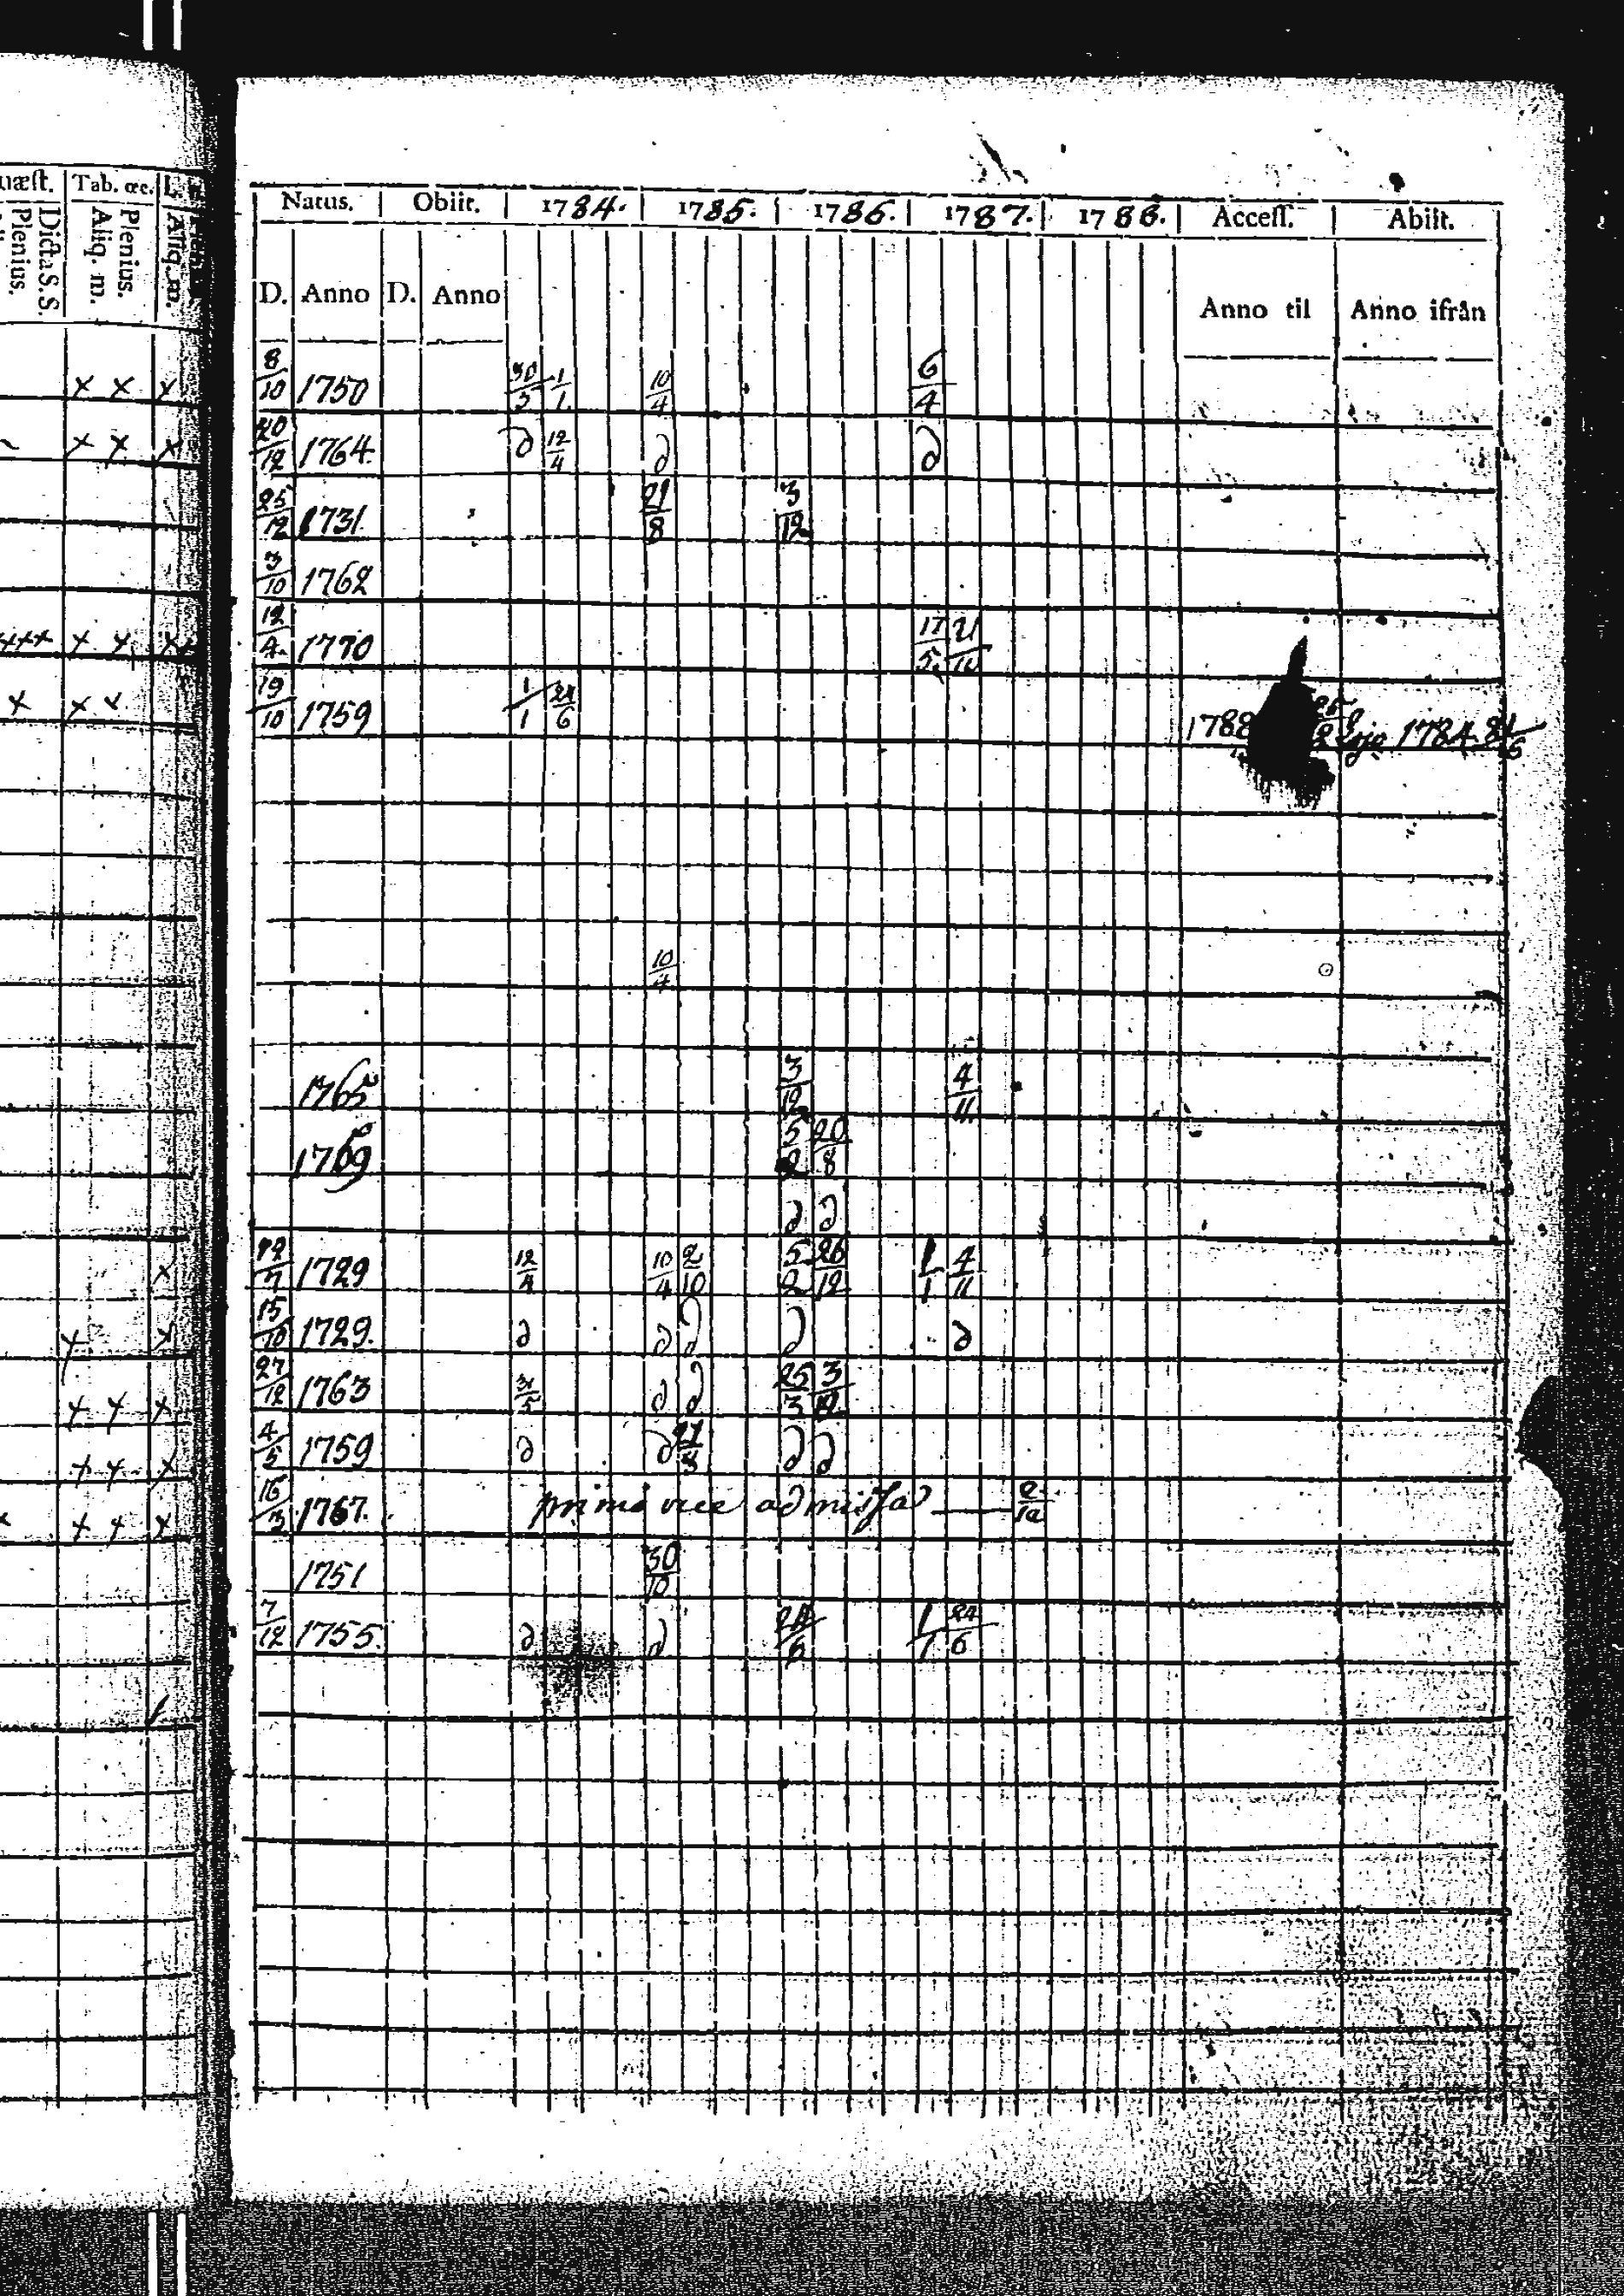 Tab. œc.
Dicta S. S.
Plenius.
Plenius.
Aliq. m.
Aliq. m.
Natus. Obiit. 1784. 1785. 1786. 1787. 1788. Access. Abiit.
D. Anno D. Anno Anno til Anno ifrån
x x x 8/10 1750 30/5 1/1 10/4 6/4
x x x 20/12 1764. ∂ 12/4 ∂ ∂
25/12 1731. 21/8 3/12
3/10 1762
+++ x x x 12/4 1770 17/5
x x x 19/10 1759 1/1 24/6 1788 1784
10/4
1765 3/12 4/11
1769 5/2 20/8
∂ ∂
x 1729 12/4 10/4 2/10 5/2 26/12 1/1 4/11
x x 15/10 1729. ∂ ∂ ∂ ∂ ∂
x x x 27/12 1763 31/5 ∂ ∂ 25/3 3/12
x x x 4/5 1759 ∂ ∂ ∂ ∂
x x x 1767. prima vice admissa — 2/10
1751 30/10
7/12 1755. ∂ ∂ 24/6 1/1 24/6